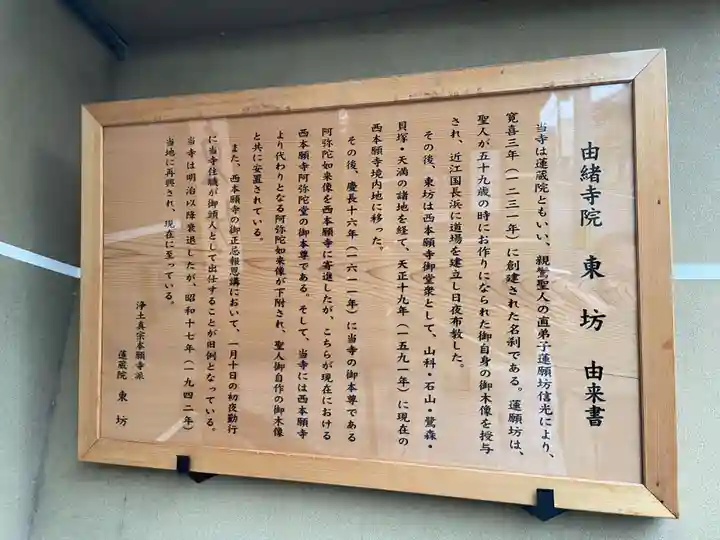 由緒寺院 東坊 由来書
当寺は蓮蔵院ともいい、親鸞聖人の直弟子蓮願坊信光により、
寛喜三年（一二三一年）に創建された名刹である。蓮願坊は、
聖人が五十九歳の時にお作りになられた御自身の御木像を授与
され、近江国長浜に道場を建立し日夜布教した。
その後、東坊は西本願寺御堂衆として、山科・石山・鷺森・
貝塚・天満の諸地を経て、天正十九年（一五九一年）に現在の
西本願寺境内地に移った。
その後、慶長十六年（一六一一年）に当寺の御本尊である
阿弥陀如来像を西本願寺に寄進したが、こちらが現在における
西本願寺阿弥陀堂の御本尊である。そして、当寺には西本願寺
より代わりとなる阿弥陀如来像が下附され、聖人御自作の御木像
と共に安置されている。
また、西本願寺の御正忌報恩講において、一月十日の初夜勤行
に当寺住職が御頭人として出仕することが旧例となっている。
当寺は明治以降衰退したが、昭和十七年（一九四二年）
当地に再興され、現在に至っている。
浄土真宗本願寺派
蓮蔵院 東坊